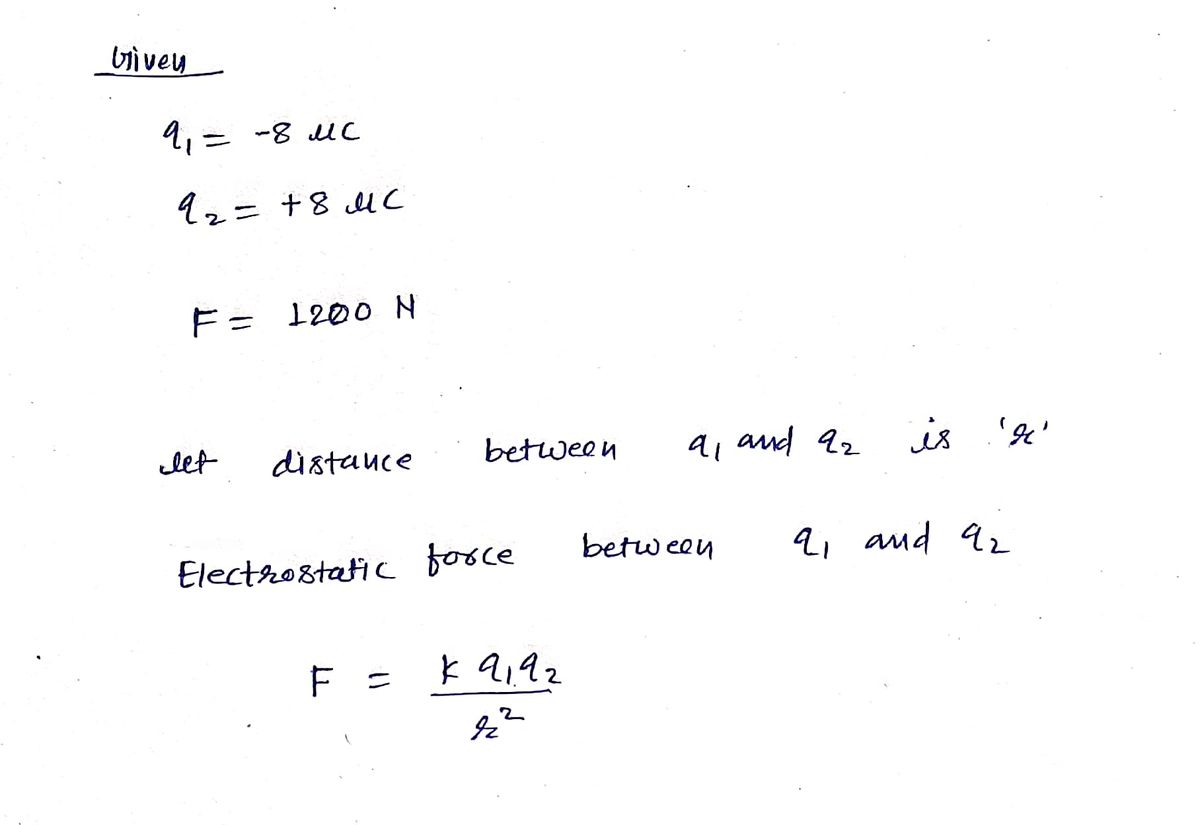 Given
q₁ = -8 μC
q₂ = +8 μC
F = 1200 N
let distance between q₁ and q₂ is 'r'
Electrostatic force between q₁ and q₂
F = k q₁q₂ / r²